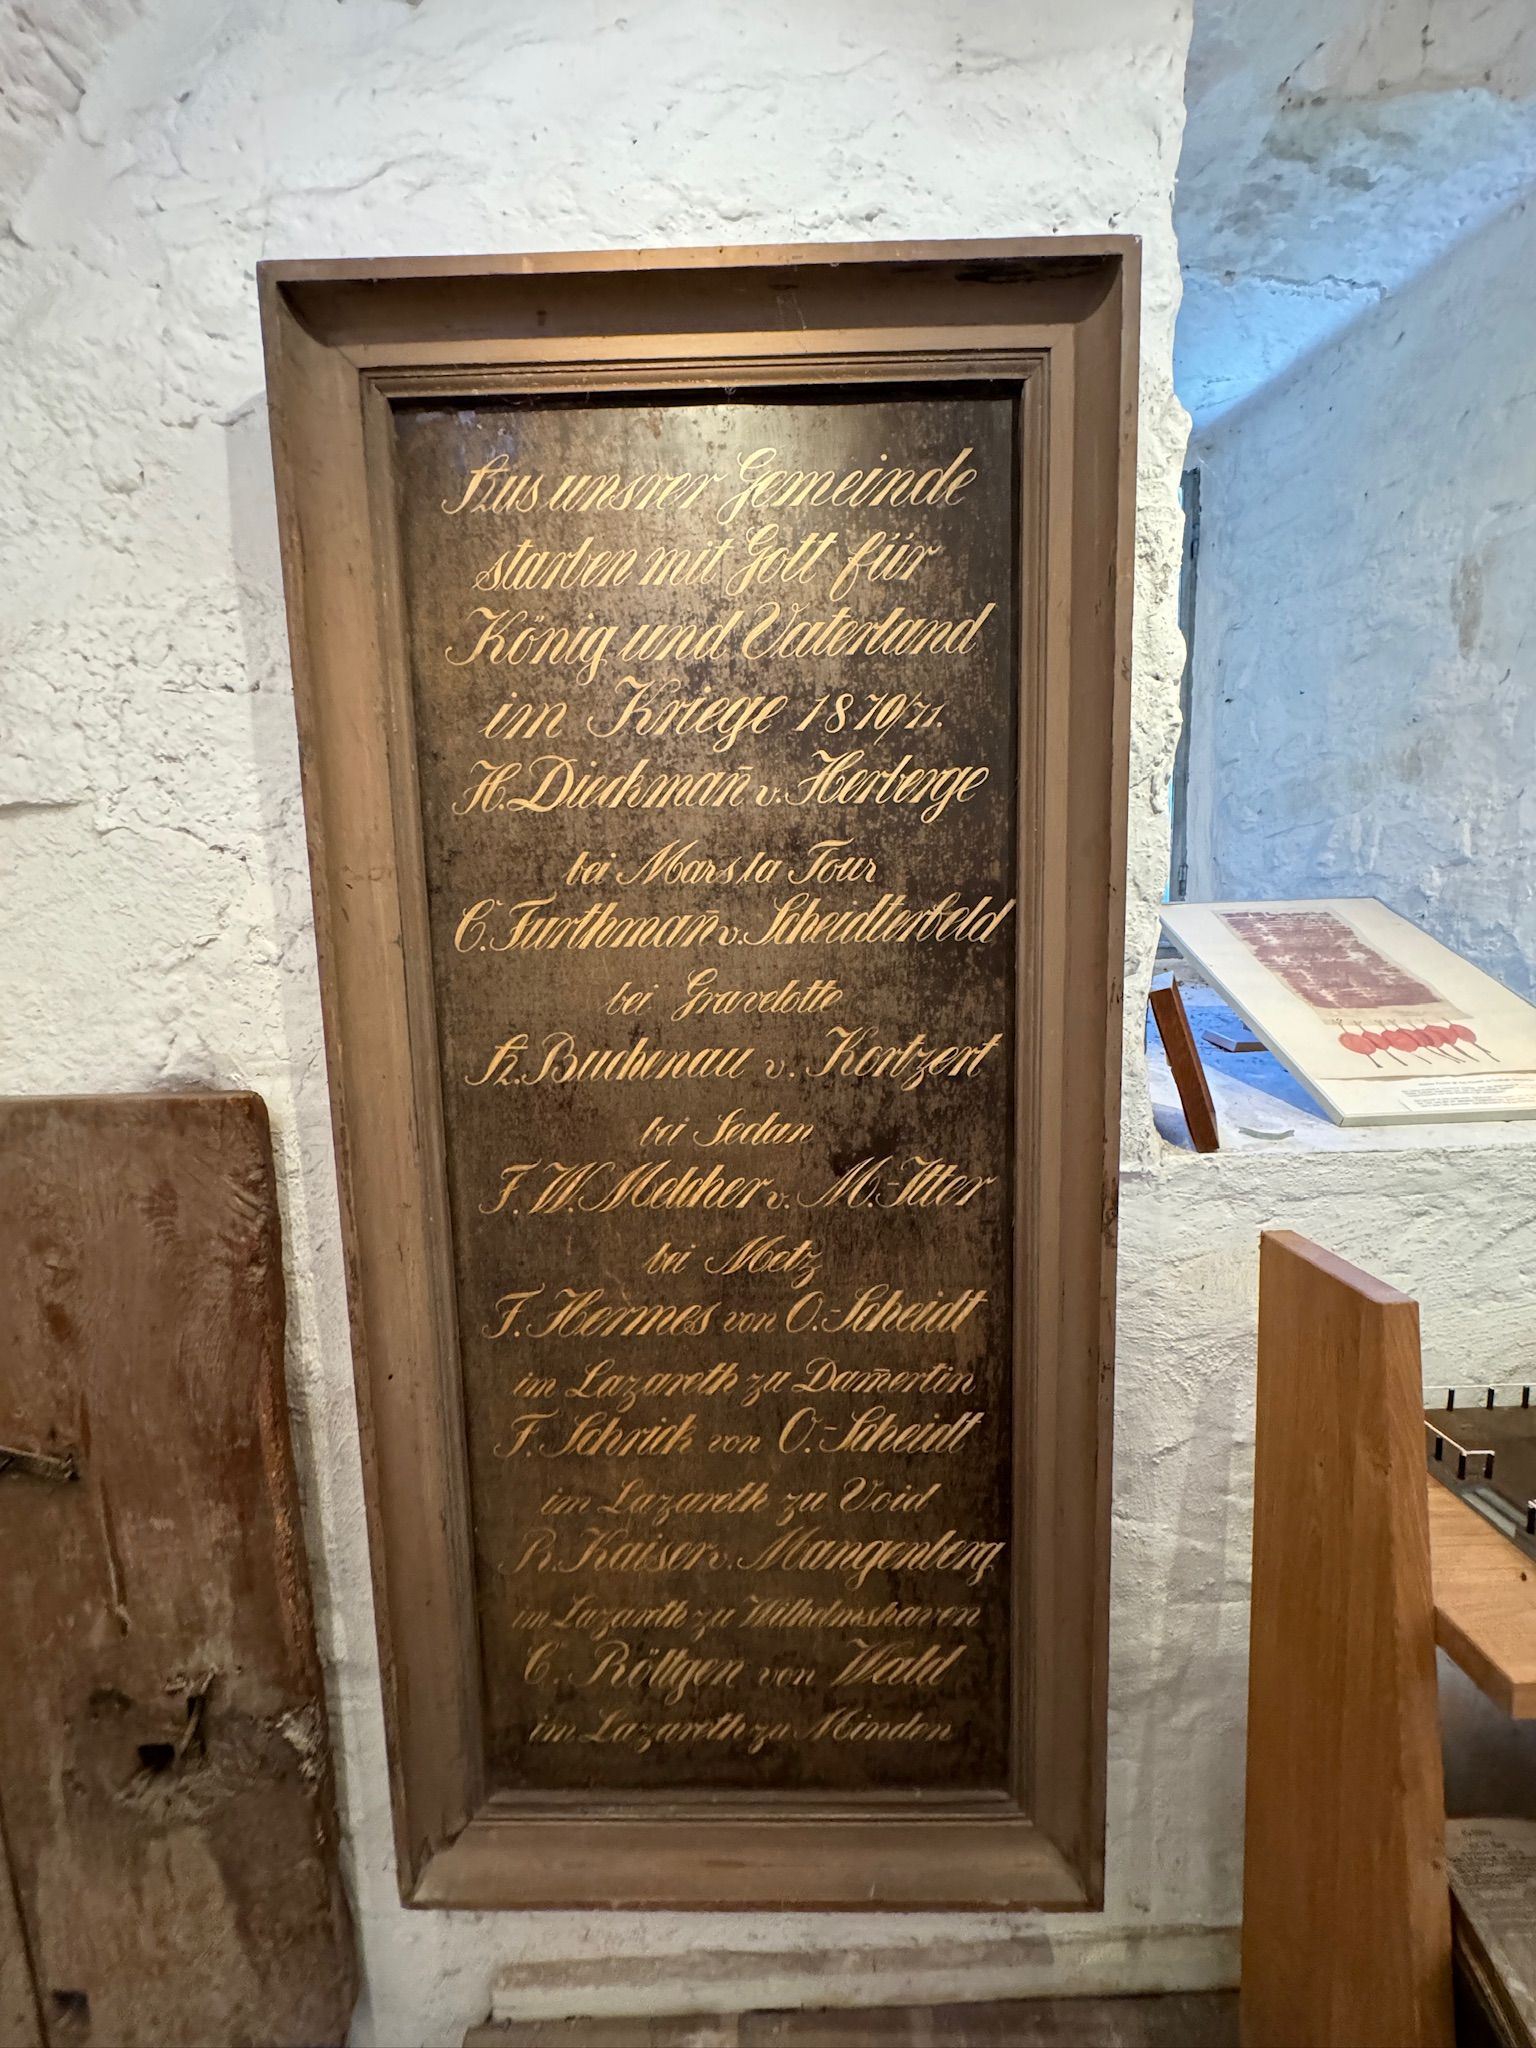 Aus unsrer Gemeinde
starben mit Gott für
König und Vaterland
im Kriege 1870/71.
H. Dieckman̄ v. Herberge
bei Mars la Tour
C. Furthman̄ v. Scheidterfeld
bei Gravelotte
A. Buchenau v. Kortzert
bei Sedan
F. W. Melcher v. M.-Itter
bei Metz
F. Hermes von O.-Scheidt
im Lazareth zu Dam̄ertin
F. Schrick von O.-Scheidt
im Lazareth zu Void
R. Kaiser v. Mangenberg
im Lazareth zu Wilhelmshaven
C. Röttgen von Wald
im Lazareth zu Minden